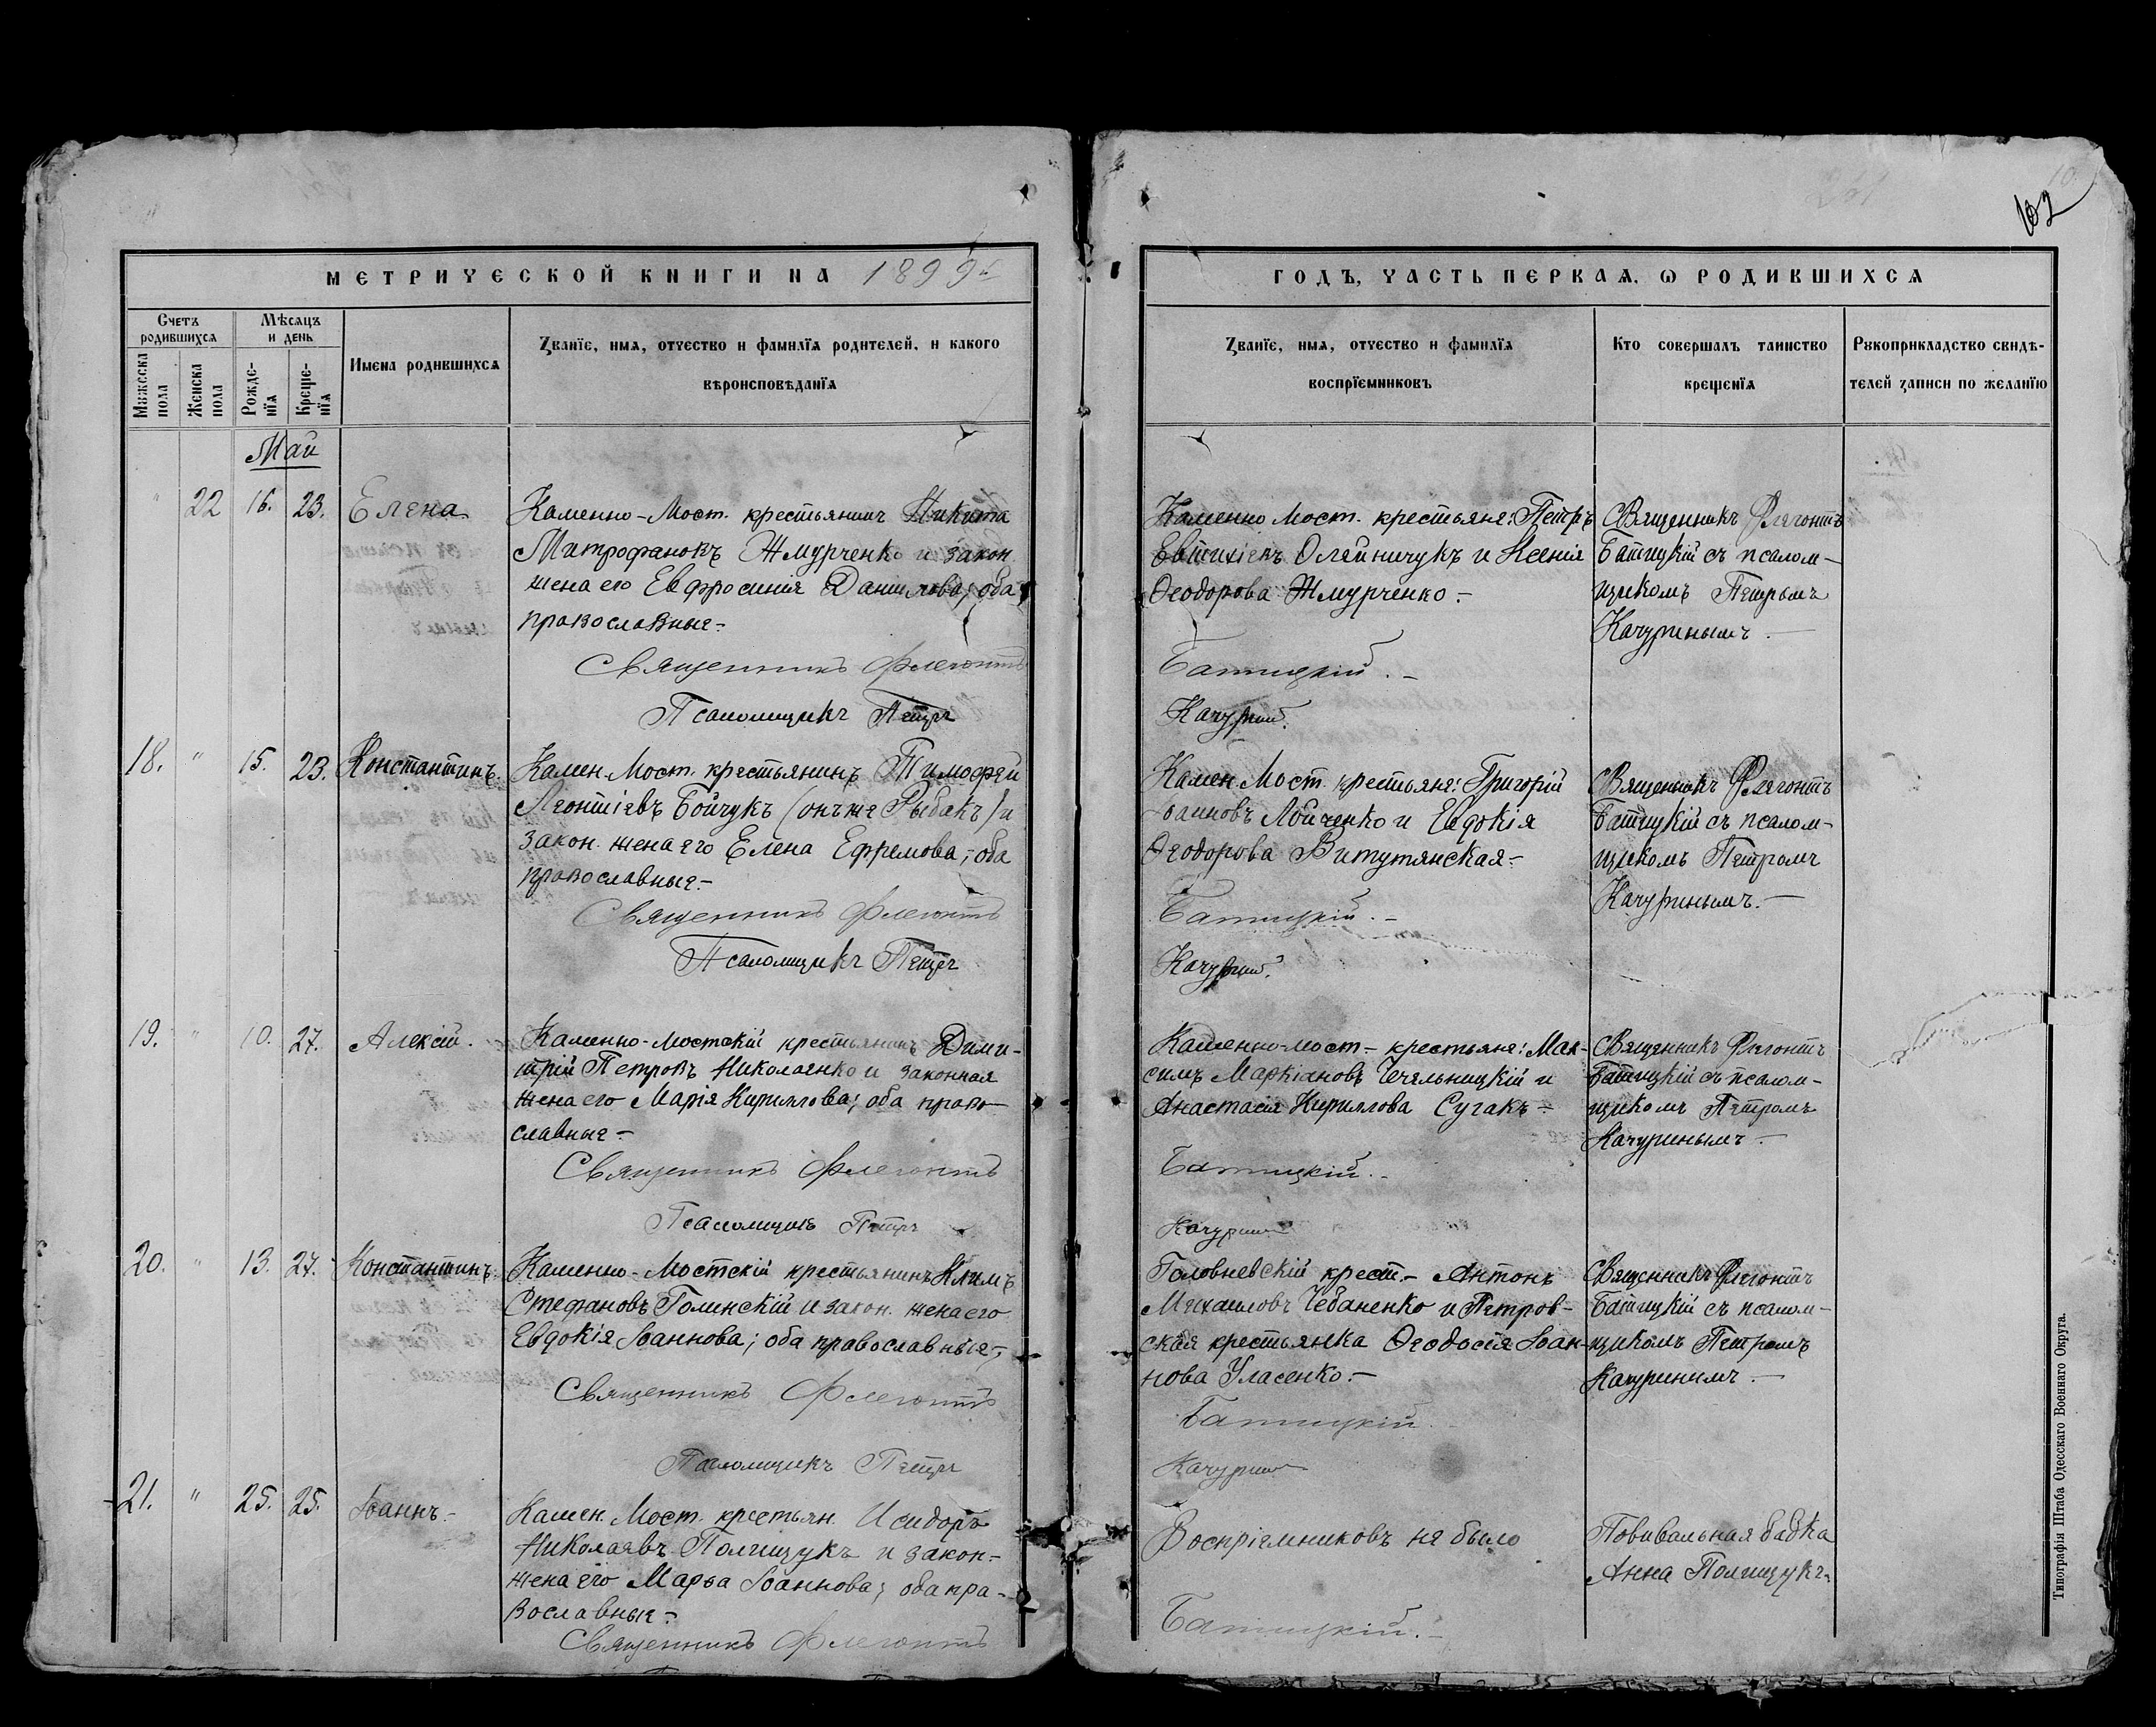 102
МЕТРИЧЕСКОЙ КНИГИ НА 1899й
ГОДЪ, ЧАСТЬ ПЕРВАЯ, Ѡ РОДИВШИХСЯ
Счетъ родившихся
Мѣсяцъ и день
Мужеска пола
Женска пола
Рожде-нїя
Креще-нїя
Имена родившихся
Званїе, имя, отчество и фамилїя родителей, и какого
вѣроисповѣданїя
Званїе, имя, отчество и фамилїя
воспрїемниковъ
Кто совершалъ таинство
крещенїя
Рукоприкладство свидѣ-
телей записи по желанїю
Май
" 22 16. 23. Елена
Каменно-Мост. крестьянинъ Никита
Митрофановъ Жмурченко и закон
жена его Евфросинія Данилова; оба
православные.-
Священникъ Флегонтъ
Псаломщикъ Петръ
Каменно Мост. крестьяне: Петръ
Евтихіевъ Олейничукъ и Ксенія
Ѳеодорова Жмурченко.-
Батицкій.-
Качурин.
Священникъ Флегонтъ
Батицкій съ псалом-
щикомъ Петромъ
Качуринымъ.-
18. " 15. 23. Константинъ.
Камен. Мост. крестьянинъ Тимофей
Леонтіевъ Бойчукъ (онъ же Рыбакъ) и
закон. жена его Елена Ефремова; оба
православные.-
Священникъ Флегонтъ
Псаломщикъ Петръ
Камен. Мост. крестьяне: Григорій
Іоанновъ Лойченко и Евдокія
Ѳеодорова Витутянская.-
Батицкій.-
Качурин.
Священникъ Флегонтъ
Батицкій съ псалом-
щикомъ Петромъ
Качуринымъ.-
19. " 10. 27. Алексій.
Каменно-Мостскій крестьянинъ Дими-
трій Петровъ Николаенко и законная
жена его Марія Кириллова; оба право-
славные.-
Священникъ Флегонтъ
Псаломщикъ Петръ
Каменно-мост.- крестьяне: Мак-
симъ Маркіановъ Чечельницкій и
Анастасія Кириллова Сугакъ.-
Батицкій.-
Качурин
Священникъ Флегонтъ
Батицкій съ псалом-
щикомъ Петромъ
Качуринымъ.-
20. " 13. 27. Константинъ.
Каменно-Мостскій крестьянинъ Климъ
Стефановъ Голинскій и закон. жена его
Евдокія Іоаннова; оба православные.-
Священникъ Флегонтъ
Псаломщикъ Петръ
Головневскій крест.- Антонъ
Михаиловъ Чебаненко и Петров-
ская крестьянка Ѳеодосія Іоан-
нова Уласенко.-
Батицкій.
Качурин
Священникъ Флегонтъ
Батицкій съ псалом-
щикомъ Петромъ
Качуринымъ.-
21. " 25. 25. Іоаннъ.-
Камен. Мост. крестьян. Исидоръ
Николаевъ Полищукъ и закон-
жена его Марѳа Іоаннова; оба пра-
вославные.-
Священникъ Флегонтъ
Воспріемниковъ не было
Батицкій.-
Повивальная бабка
Анна Полищукъ.
Типографія Штаба Одесскаго Военнаго Округа.